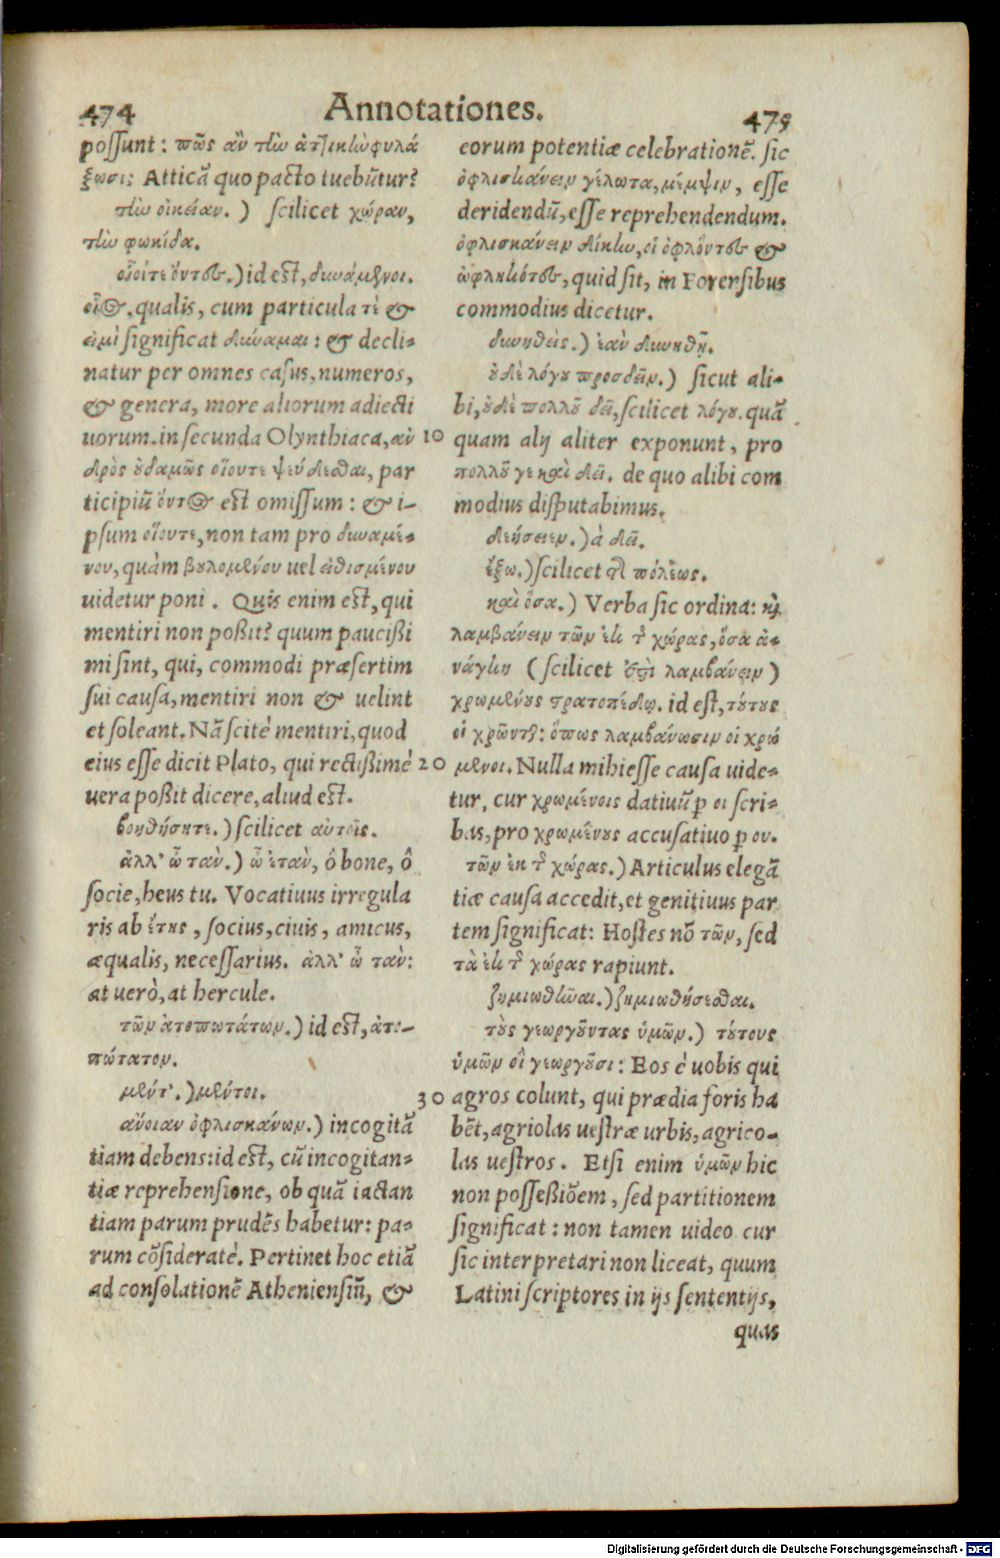 474
Annotationes.
475
possunt: πῶς ἂν τὴν ἀττικὴν φυλά
ξωσι; Atticã quo pacto tuebũtur?
τὴν οἰκείαν.) scilicet χώραν,
τὴν φωκίδα.
οἷοίτε ὄντες.) id est, δυνάμενοι.
οἷος, qualis, cum particula τὲ &
εἰμὶ significat δύναμαι: & decli-
natur per omnes casus, numeros,
& genera, more aliorum adiecti
uorum. in secunda Olynthiaca, ἀν
δρὸς οὐδαμῶς οἵουτε ψεύδεσθαι, par
ticipiũ ὄντος est omissum: & i-
psum οἵουτε, non tam pro δυναμέ-
νου, quàm βουλομένου uel εἰθισμένου
uidetur poni. Quis enim est, qui
mentiri non poßit? quum paucißi
mi sint, qui, commodi præsertim
sui causa, mentiri non & uelint
et soleant. Nã scitè mentiri, quod
eius esse dicit Plato, qui rectißimè
uera poßit dicere, aliud est.
βοηθήσητε.) scilicet αὐτοῖς.
ἀλλ' ὦ τὰν.) ὦ ἐτὰν, ô bone, ô
socie, heus tu. Vocatiuus irregula
ris ab ἔτης, socius, ciuis, amicus,
æqualis, necessarius. ἀλλ' ὦ τὰν:
at uerò, at hercule.
τῶν ἀτοπωτάτων.) id est, ἀτο-
πώτατον.
μέντ'.) μέντοι.
ἄνοιαν ὀφλισκάνων.) incogitã
tiam debens: id est, cũ incogitan-
tiæ reprehensione, ob quã iactan
tiam parum prudẽs habetur: pa-
rum cõsideratè. Pertinet hoc etiã
ad consolationẽ Atheniensiũ, &
eorum potentiæ celebrationẽ. sic
ὀφλισκάνειν γέλωτα, μέμψιν, esse
deridendũ, esse reprehendendum.
ὀφλισκάνειν δίκην, οἱ ὀφλόντες &
ὠφληκότες, quid sit, in Forensibus
commodius dicetur.
δυνηθείς.) ἐὰν δυνηθῇ.
οὐδὲ λόγου προσδεῖν.) sicut ali-
bi, οὐδὲ πολλοῦ δεῖ, scilicet λόγου. quã
10 quam alij aliter exponunt, pro
πολλοῦ γε καὶ δεῖ. de quo alibi com
modius disputabimus.
δεήσειεν.) ἃ δεῖ.
ἔξω.) scilicet τῆς πόλεως.
καὶ ὅσα.) Verba sic ordina: καὶ
λαμβάνειν τῶν ἐκ τῆς χώρας, ὅσα ἀ-
νάγκη (scilicet ἐστὶ λαμβάνειν)
χρωμένους στρατοπέδῳ. id est, τούτους
οἱ χρῶνται: ὅπως λαμβάνωσιν οἱ χρώ
20 μενοι. Nulla mihi esse causa uide-
tur, cur χρωμένοις datiuũ ꝑ οι scri-
bas, pro χρωμένους accusatiuo ꝑ ου.
τῶν ἐκ τῆς χώρας.) Articulus elegã
tiæ causa accedit, et genitiuus par
tem significat: Hostes nõ τῶν, sed
τὰ ἐκ τῆς χώρας rapiunt.
ζημιωθῆναι.) ζημιωθήσεσθαι.
τοὺς γεωργοῦντας ὑμῶν.) τούτους
ὑμῶν οἳ γεωργοῦσι: Eos è uobis qui
30 agros colunt, qui prædia foris ha
bẽt, agriolas uestræ urbis, agrico-
las uestros. Etsi enim ὑμῶν hic
non posseßiõem, sed partitionem
significat: non tamen uideo cur
sic interpretari non liceat, quum
Latini scriptores in ijs sententijs,
quas
Digitalisierung gefördert durch die Deutsche Forschungsgemeinschaft - DFG